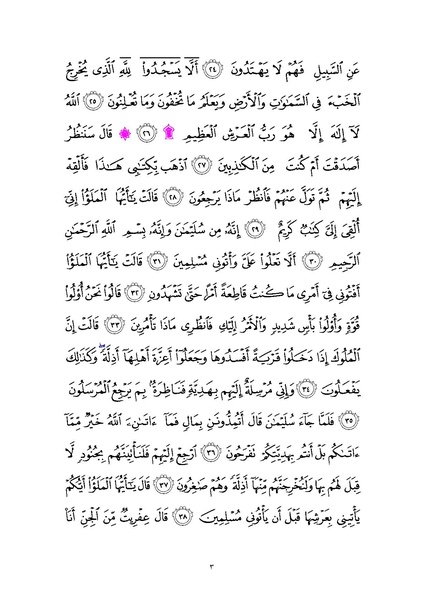 عَنِ ٱلسَّبِيلِ فَهُمْ لَا يَهْتَدُونَ ۝٢٤ أَلَّا يَسْجُدُوا۟ لِلَّهِ ٱلَّذِى يُخْرِجُ
ٱلْخَبْءَ فِى ٱلسَّمَـٰوَٰتِ وَٱلْأَرْضِ وَيَعْلَمُ مَا تُخْفُونَ وَمَا تُعْلِنُونَ ۝٢٥ ٱللَّهُ
لَآ إِلَـٰهَ إِلَّا هُوَ رَبُّ ٱلْعَرْشِ ٱلْعَظِيمِ ۩ ۝٢٦ ۞ قَالَ سَنَنظُرُ
أَصَدَقْتَ أَمْ كُنتَ مِنَ ٱلْكَـٰذِبِينَ ۝٢٧ ٱذْهَب بِّكِتَـٰبِى هَـٰذَا فَأَلْقِهْ
إِلَيْهِمْ ثُمَّ تَوَلَّ عَنْهُمْ فَٱنظُرْ مَاذَا يَرْجِعُونَ ۝٢٨ قَالَتْ يَـٰٓأَيُّهَا ٱلْمَلَؤُا۟ إِنِّىٓ
أُلْقِىَ إِلَىَّ كِتَـٰبٌ كَرِيمٌ ۝٢٩ إِنَّهُۥ مِن سُلَيْمَـٰنَ وَإِنَّهُۥ بِسْمِ ٱللَّهِ ٱلرَّحْمَـٰنِ
ٱلرَّحِيمِ ۝٣٠ أَلَّا تَعْلُوا۟ عَلَىَّ وَأْتُونِى مُسْلِمِينَ ۝٣١ قَالَتْ يَـٰٓأَيُّهَا ٱلْمَلَؤُا۟
أَفْتُونِى فِىٓ أَمْرِى مَا كُنتُ قَاطِعَةً أَمْرًا حَتَّىٰ تَشْهَدُونِ ۝٣٢ قَالُوا۟ نَحْنُ أُو۟لُوا۟
قُوَّةٍ وَأُو۟لُوا۟ بَأْسٍ شَدِيدٍ وَٱلْأَمْرُ إِلَيْكِ فَٱنظُرِى مَاذَا تَأْمُرِينَ ۝٣٣ قَالَتْ إِنَّ
ٱلْمُلُوكَ إِذَا دَخَلُوا۟ قَرْيَةً أَفْسَدُوهَا وَجَعَلُوٓا۟ أَعِزَّةَ أَهْلِهَآ أَذِلَّةً ۖ وَكَذَٰلِكَ
يَفْعَلُونَ ۝٣٤ وَإِنِّى مُرْسِلَةٌ إِلَيْهِم بِهَدِيَّةٍ فَنَاظِرَةٌۢ بِمَ يَرْجِعُ ٱلْمُرْسَلُونَ
۝٣٥ فَلَمَّا جَآءَ سُلَيْمَـٰنَ قَالَ أَتُمِدُّونَنِ بِمَالٍ فَمَآ ءَاتَىٰنِۦَ ٱللَّهُ خَيْرٌ مِّمَّآ
ءَاتَىٰكُم بَلْ أَنتُم بِهَدِيَّتِكُمْ تَفْرَحُونَ ۝٣٦ ٱرْجِعْ إِلَيْهِمْ فَلَنَأْتِيَنَّهُم بِجُنُودٍ لَّا
قِبَلَ لَهُم بِهَا وَلَنُخْرِجَنَّهُم مِّنْهَآ أَذِلَّةً وَهُمْ صَـٰغِرُونَ ۝٣٧ قَالَ يَـٰٓأَيُّهَا ٱلْمَلَؤُا۟ أَيُّكُمْ
يَأْتِينِى بِعَرْشِهَا قَبْلَ أَن يَأْتُونِى مُسْلِمِينَ ۝٣٨ قَالَ عِفْرِيتٌ مِّنَ ٱلْجِنِّ أَنَا۠
٣